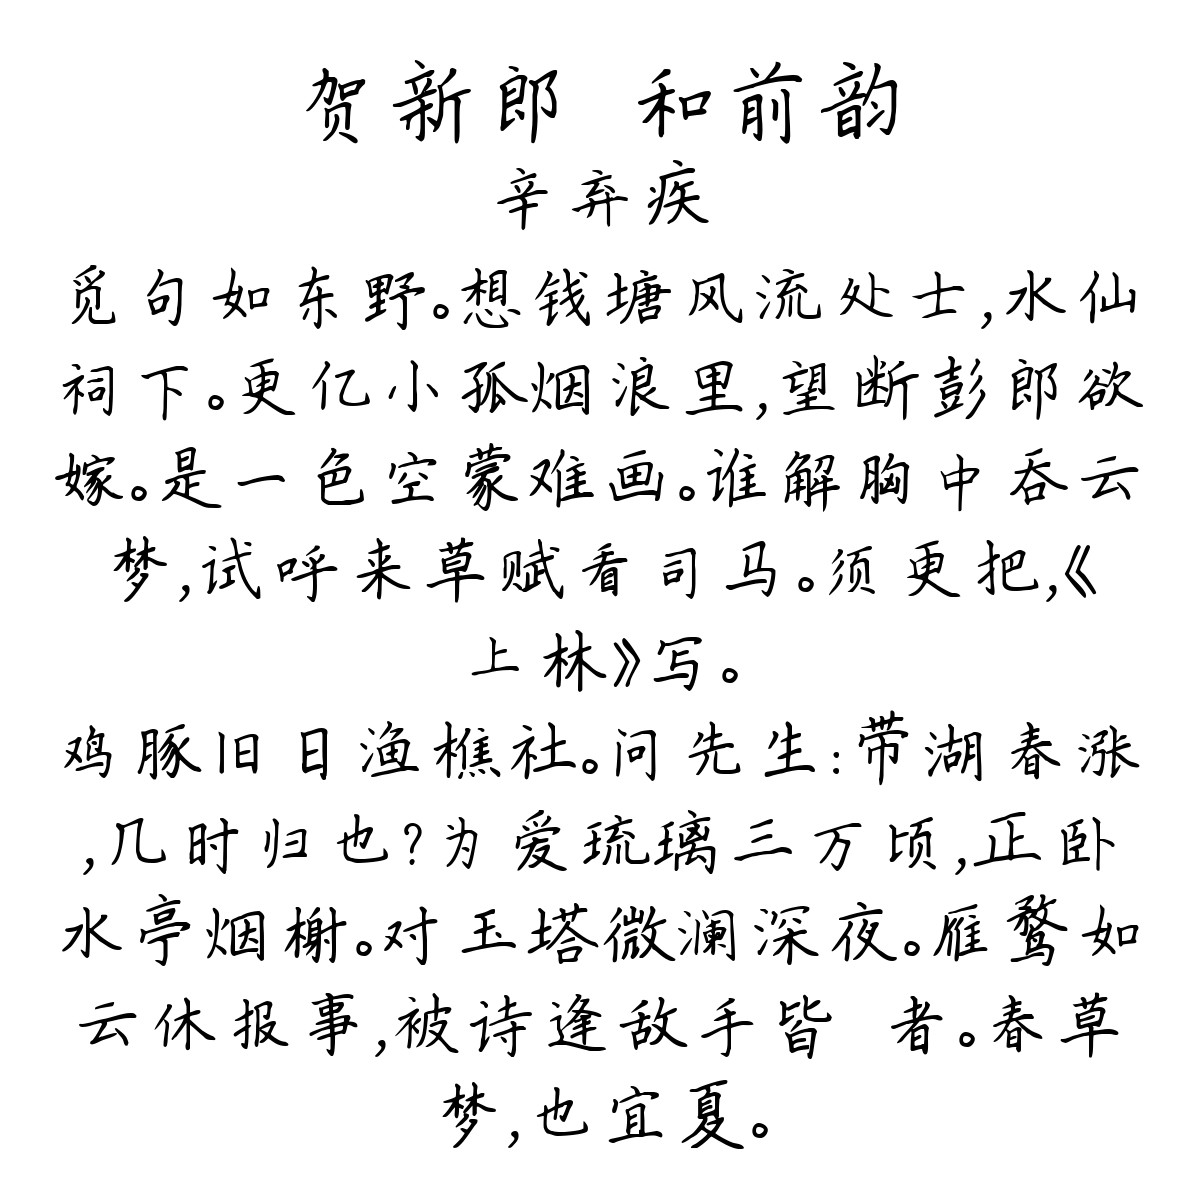 贺新郎 和前韵
辛弃疾
觅句如东野。想钱塘风流处士,水仙
祠下。更亿小孤烟浪里,望断彭郎欲
嫁。是一色空蒙难画。谁解胸中吞云
梦,试呼来草赋看司马。须更把,《
上林》写。
鸡豚旧日渔樵社。问先生:带湖春涨
,几时归也?为爱琉璃三万顷,正卧
水亭烟榭。对玉塔微澜深夜。雁鹜如
云休报事,被诗逢敌手皆 者。春草
梦,也宜夏。